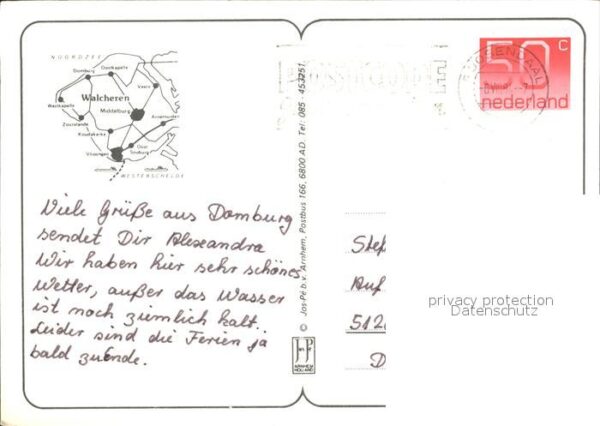 NOORDZEE
Domburg
Oostkapelle
Veere
Westkapelle
Walcheren
Middelburg
Zoutelande
Koudekerke
Arnemuiden
Vlissingen
Oost Souburg
WESTERSCHELDE
Viele Grüße aus Domburg
sendet Dir Alexandra
Wir haben hier sehr schönes
Wetter, außer das Wasser
ist noch ziemlich kalt.
Leider sind die Ferien ja
bald zuende.
© Jos-Pé b.v. Arnhem, Postbus 166, 6800 AD. Tel: 085 - 453251.
JosPé
ARNHEM
HOLLAND
50 c
nederland
Stef
Auf
512
D
privacy protection
Datenschutz